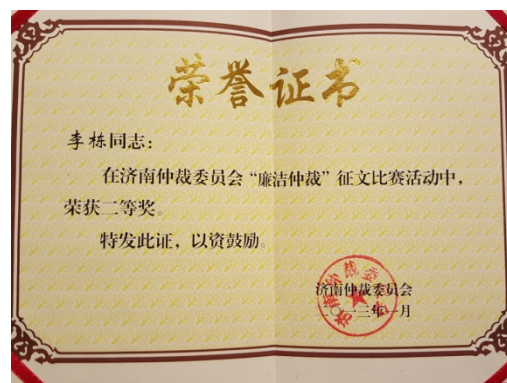 荣誉证书
李栋同志：
在济南仲裁委员会“廉洁仲裁”征文比赛活动中，
荣获二等奖。
特发此证，以资鼓励。
济南仲裁委员会
一三年一月